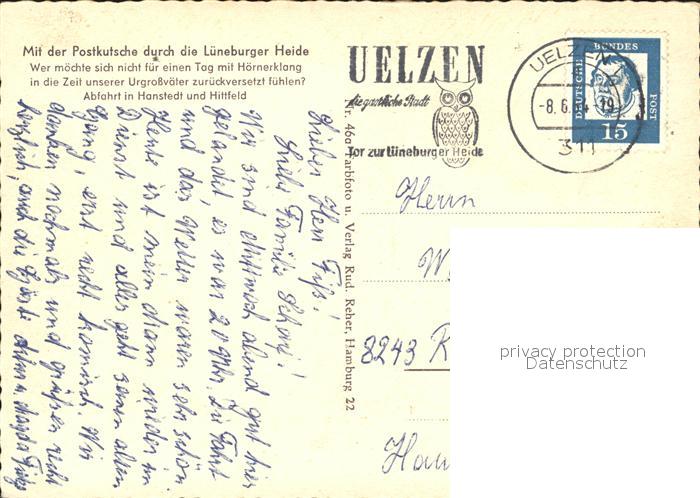 Mit der Postkutsche durch die Lüneburger Heide
Wer möchte sich nicht für einen Tag mit Hörnerklang
in die Zeit unserer Urgroßväter zurückversetzt fühlen?
Abfahrt in Hanstedt und Hittfeld
UELZEN
die gastliche Stadt
Tor zur Lüneburger Heide
UELZEN
-8.6.
-19
311
DEUTSCHE
BUNDES
POST
15
Nr. 460 Farbfoto u. Verlag Rud. Reher, Hamburg 22
Lieber Herr
Familie
Wir sind Mittwoch abend gut hier
gelandet, es war 20 Uhr. Die Fahrt
und das Wetter waren sehr schön.
Heute ist mein Mann wieder im
Dienst und alles geht seinen alten
Gang, erst recht komisch. Wir
danken nochmals und grüßen recht
herzlich, auch die
Herrn
W
8243 R
Hau
privacy protection
Datenschutz